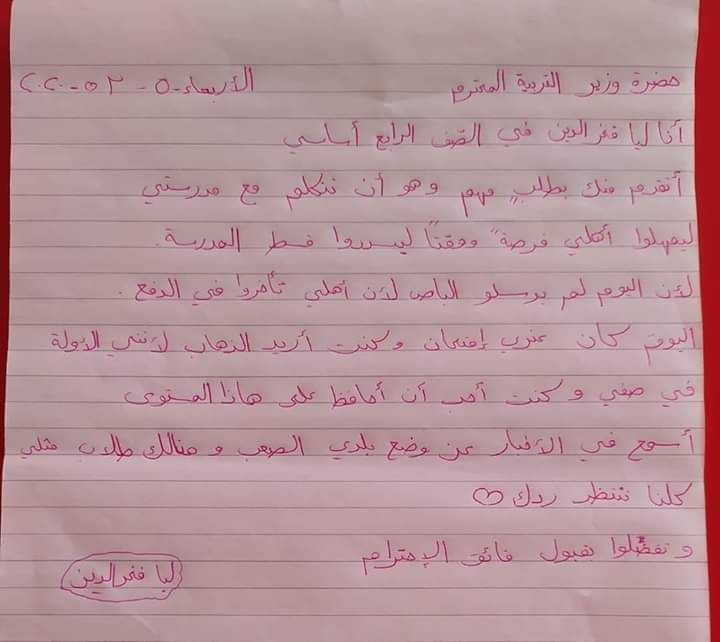 حضرة وزير التربية المحترم الأربعاء ٥-٢-٢٠٢٠
أنا ليا فخر الدين في الصّف الرابع أساسي
أتقدم منك بطلبٍ مهم وهو أن تتكلم مع مدرستي
ليمهلوا أهلي فرصةً ووقتاً ليسددوا قسط المدرسة.
لأن اليوم لم يرسلو الباص لأن أهلي تأخروا في الدفع.
اليوم كان عندي إمتحان وكنت أريد الذهاب لأنني الأولة
في صفي وكنت أحب أن أحافظ على هاذا المستوى
أسمع في الأخبار عن وضع بلدي الصعب وهنالك طلاب مثلي
كلنا ننتظر ردك ♡
وتفضّلوا بقبول فائق الإحترام
ليا فخر الدين